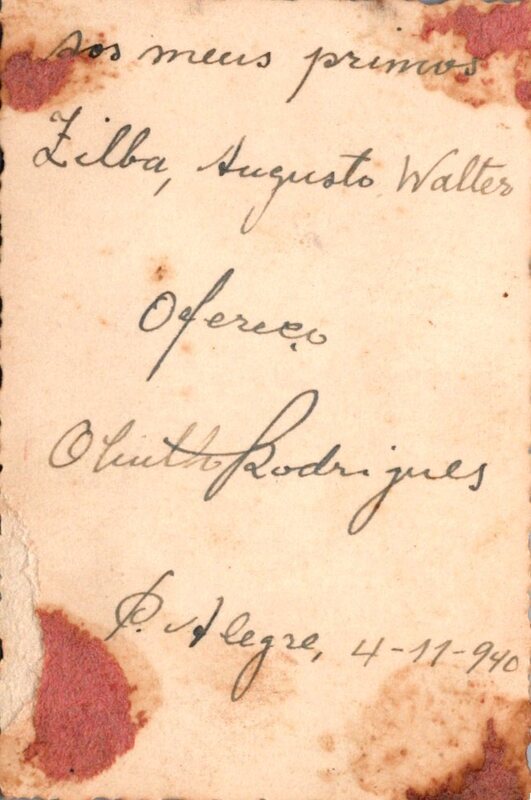 Aos meus primos
Zilba, Augusto Walter
Ofereço
Rodrigues
P. Alegre, 4-11-940